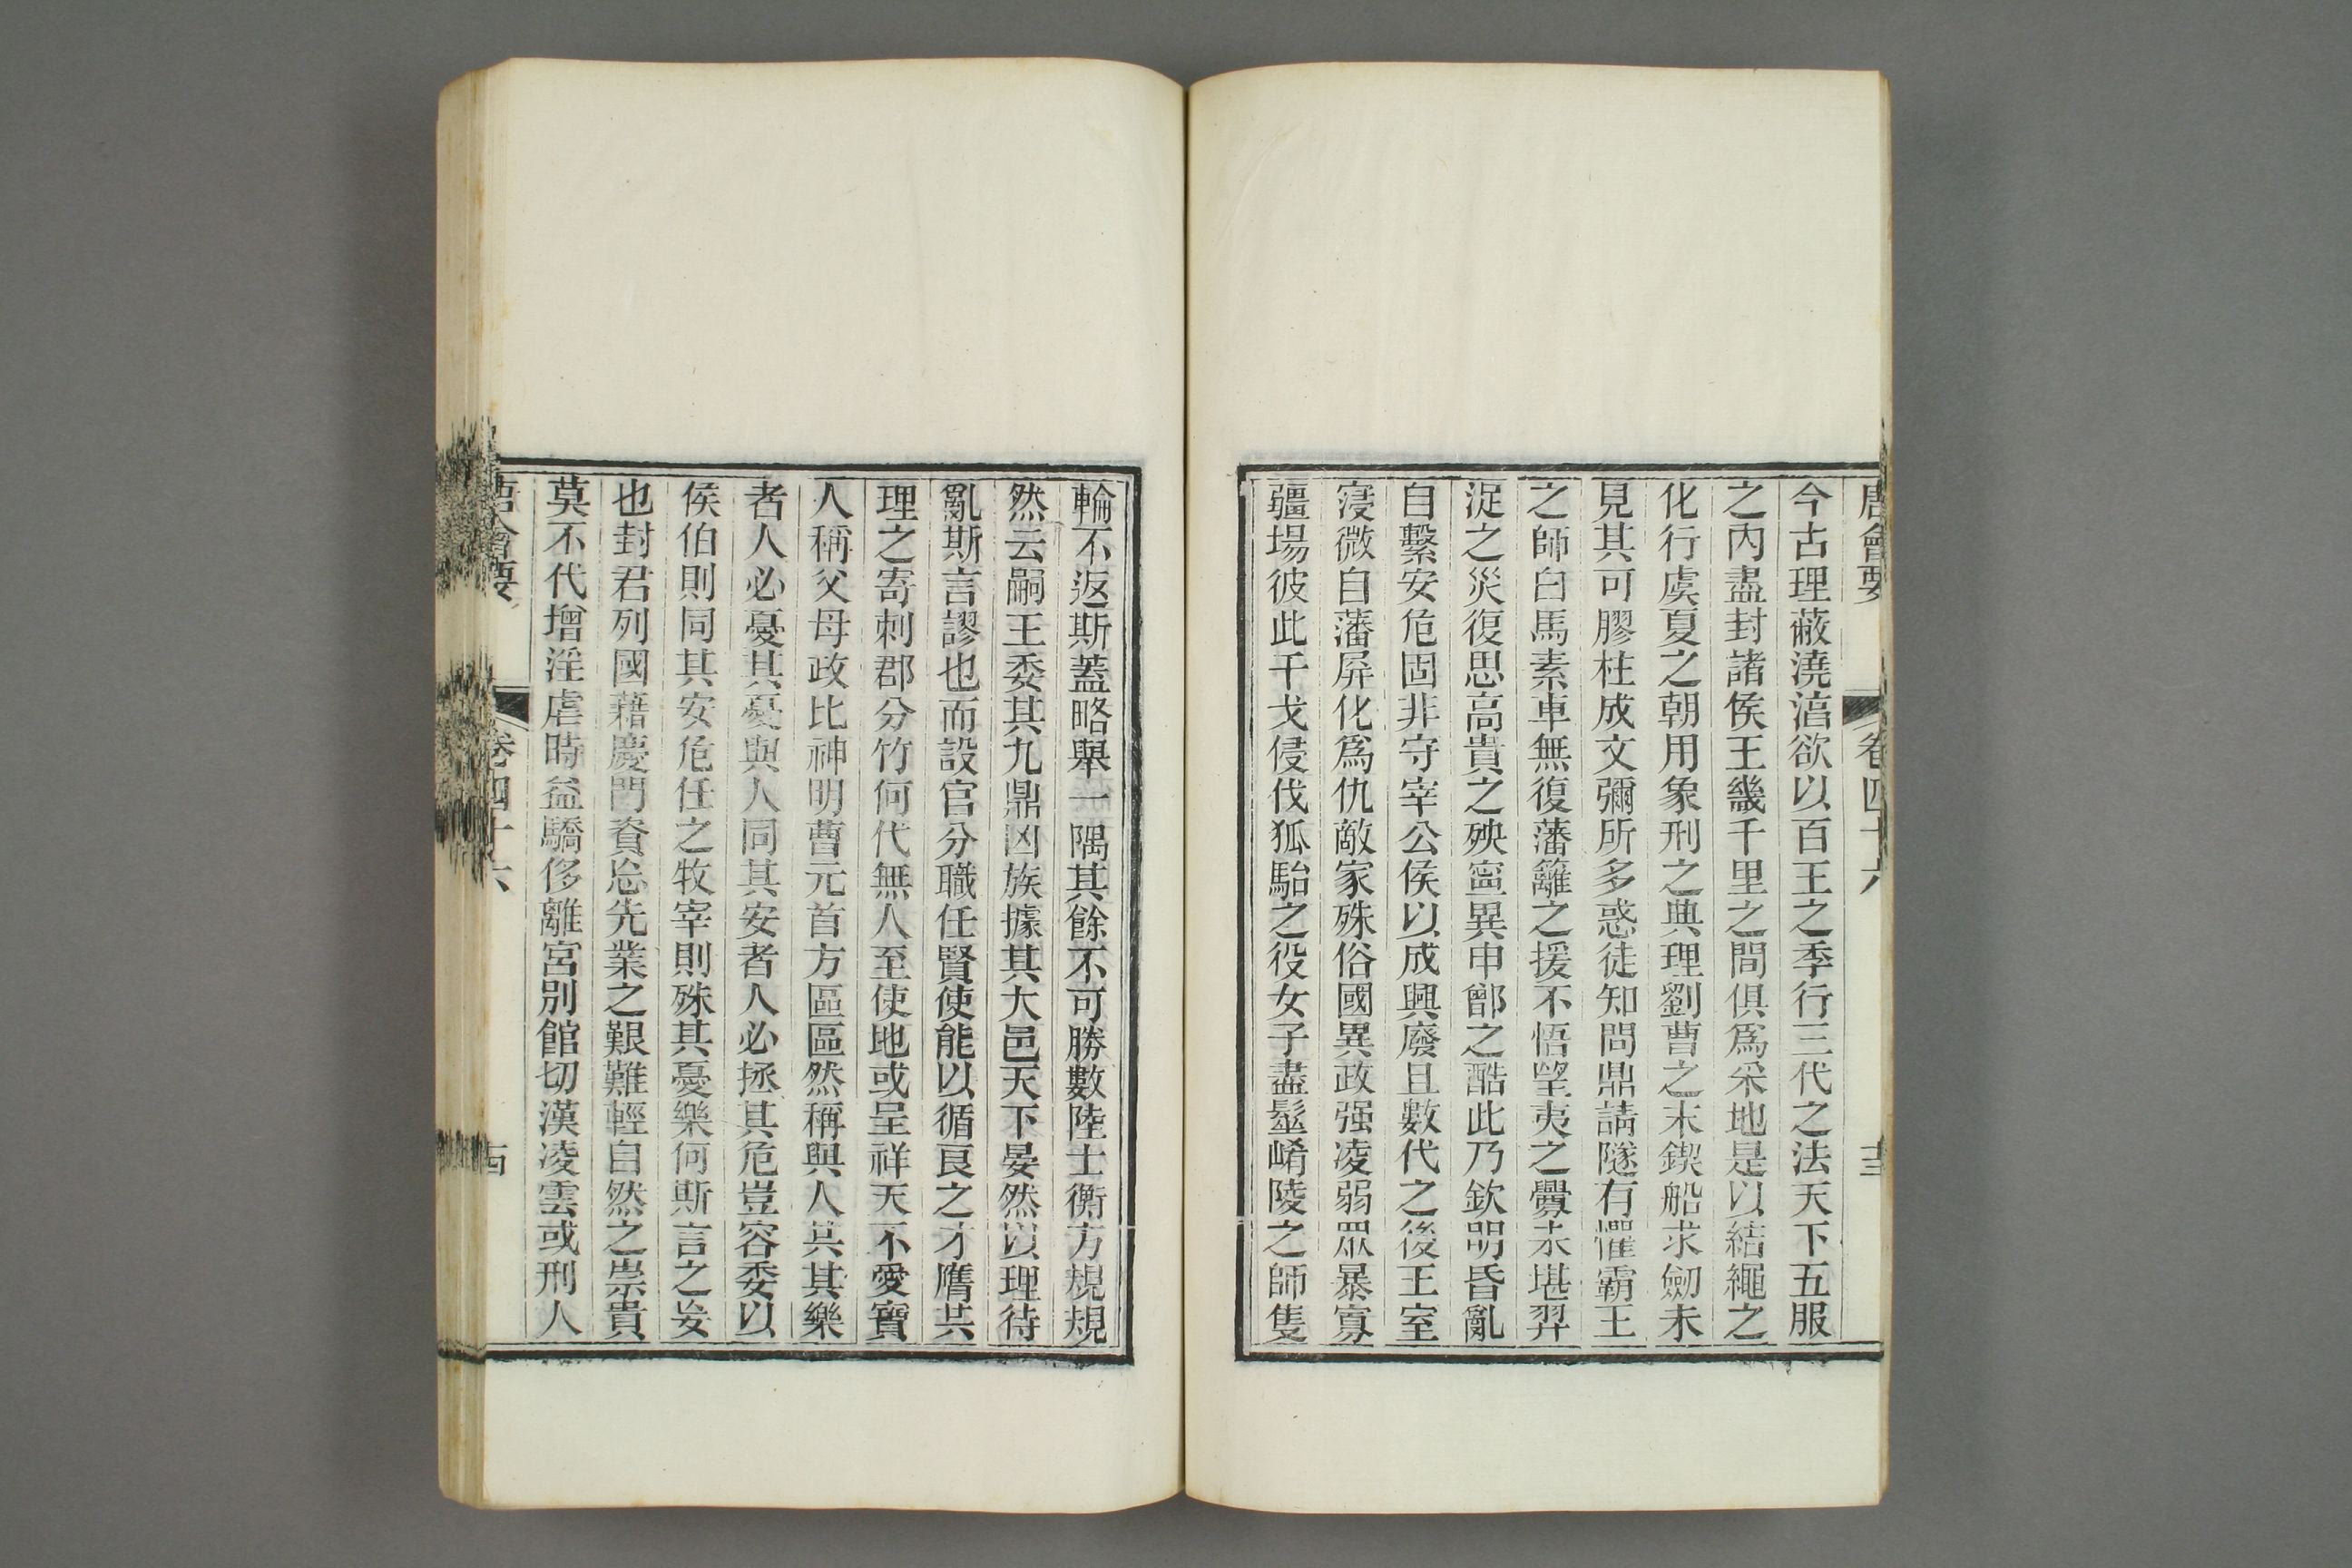 唐會要 卷四十六 十三
今古理蔽澆湻欲以百王之季行三代之法天下五服
之內盡封諸侯王畿千里之間俱爲采地是以結繩之
化行虞夏之朝用象刑之典理劉曹之末鍥船求劒未
見其可膠柱成文彌所多惑徒知問鼎請隧有懼霸王
之師白馬素車無復藩籬之援不悟望夷之釁未堪羿
浞之災復思高貴之殃寧異申鄫之酷此乃欽明昏亂
自繫安危固非守宰公侯以成興廢且數代之後王室
寖微自藩屏化爲仇敵家殊俗國異政强凌弱眾暴寡
疆場彼此干戈侵伐狐駘之役女子盡髽崤陵之師隻
輪不返斯蓋略舉一隅其餘不可勝數陸士衡方規規
然云嗣王委其九鼎凶族據其大邑天下晏然以理待
亂斯言謬也而設官分職任賢使能以循良之才膺共
理之寄刺郡分竹何代無人至使地或呈祥天不愛寶
人稱父母政比神明曹元首方區區然稱與人共其樂
者人必憂其憂與人同其安者人必拯其危豈容委以
侯伯則同其安危任之牧宰則殊其憂樂何斯言之妄
也封君列國藉慶門資忘先業之艱難輕自然之崇貴
莫不代增淫虐時益驕侈離宮別館切漢凌雲或刑人
唐會要 卷四十六 古